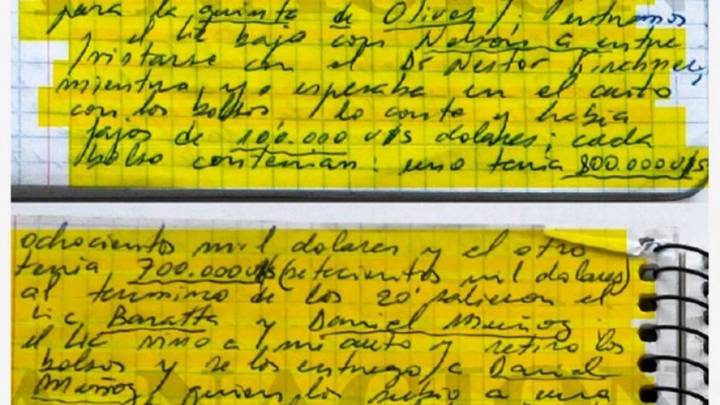 para la quinta de Olivos /: entramos
y el Lic bajo con Nelson a entre
/vistarse con el Dr Nestor Kirchner,
mientras yo esperaba en el auto
con los bolsos / lo conte y habia
fajos de 100.000 u/s dolares; cada
/bolso contenian: uno tenia 800.000 u/s
ochocientos mil dolares y el otro
tenia 700.000 u/s (setecientos mil dolares)
al termino de los 20' salieron el
Lic Baratta y Daniel Muñoz
el Lic vino a / mi auto y retiro los
bolsos y se los entrego / a Daniel
Muñoz / quien los subio a una